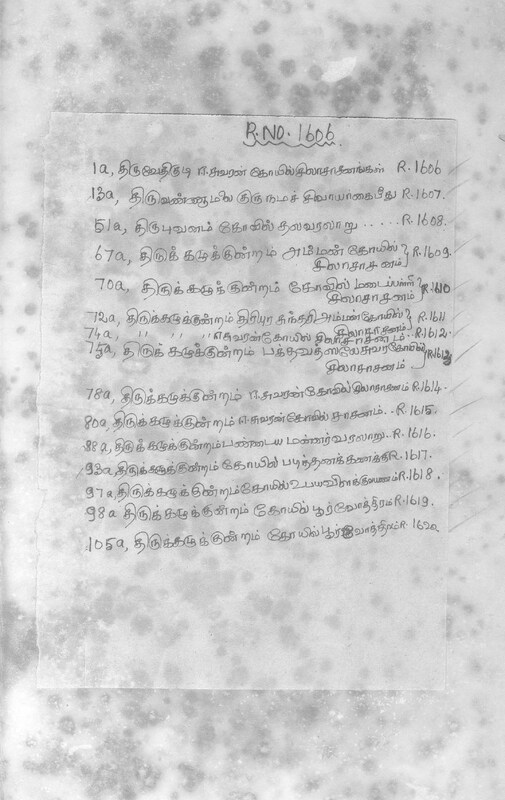 R.NO. 1606
1a, திருவேதிகுடி ஈசுவரன் கோயில் சிலாசாசனங்கள் R.1606
13a, திருவண்ணாமலை குருநமச்சிவாயர் கைபீது R.1607.
51a, திருபுவனம் கோவில் தலவரலாறு ..... R.1608.
67a, திருக்கழுக்குன்றம் அம்மன் கோயில் } R.1609.
சிலாசாசனம்
70a, திருக்கழுக்குன்றம் கோவில் மடைப்பள்ளி } R.1610
சிலாசாசனம்
72a, திருக்கழுக்குன்றம் திரிபுர சுந்தரி அம்மன்கோயில் } R.1611
சிலாசாசனம்
74a, " " " ஈசுவரன்கோயில் சிலாசாசனம். R.1612.
75a, திருக்கழுக்குன்றம் பக்தவத்ஸலேசுவரகோயில் } R.1613
சிலாசாசனம்
78a, திருக்கழுக்குன்றம் ஈசுவரன்கோவில் சிலாசாசனம் R.1614.
80a, திருக்கழுக்குன்றம் ஈசுவரன்கோவில் சாசனம். . R.1615.
88a, திருக்கழுக்குன்றம் பண்டைய மன்னர் வரலாறு. . R.1616.
93a, திருக்கழுக்குன்றம் கோயில் படித்தனக்கணக்கு R.1617.
97a, திருக்கழுக்குன்றம் கோயில் உபய R.1618.
98a, திருக்கழுக்குன்றம் கோயில் பூர்வோத்திரம் R.1619.
105a, திருக்கழுக்குன்றம் கோயில் பூர்வோத்திரம் R.1620.